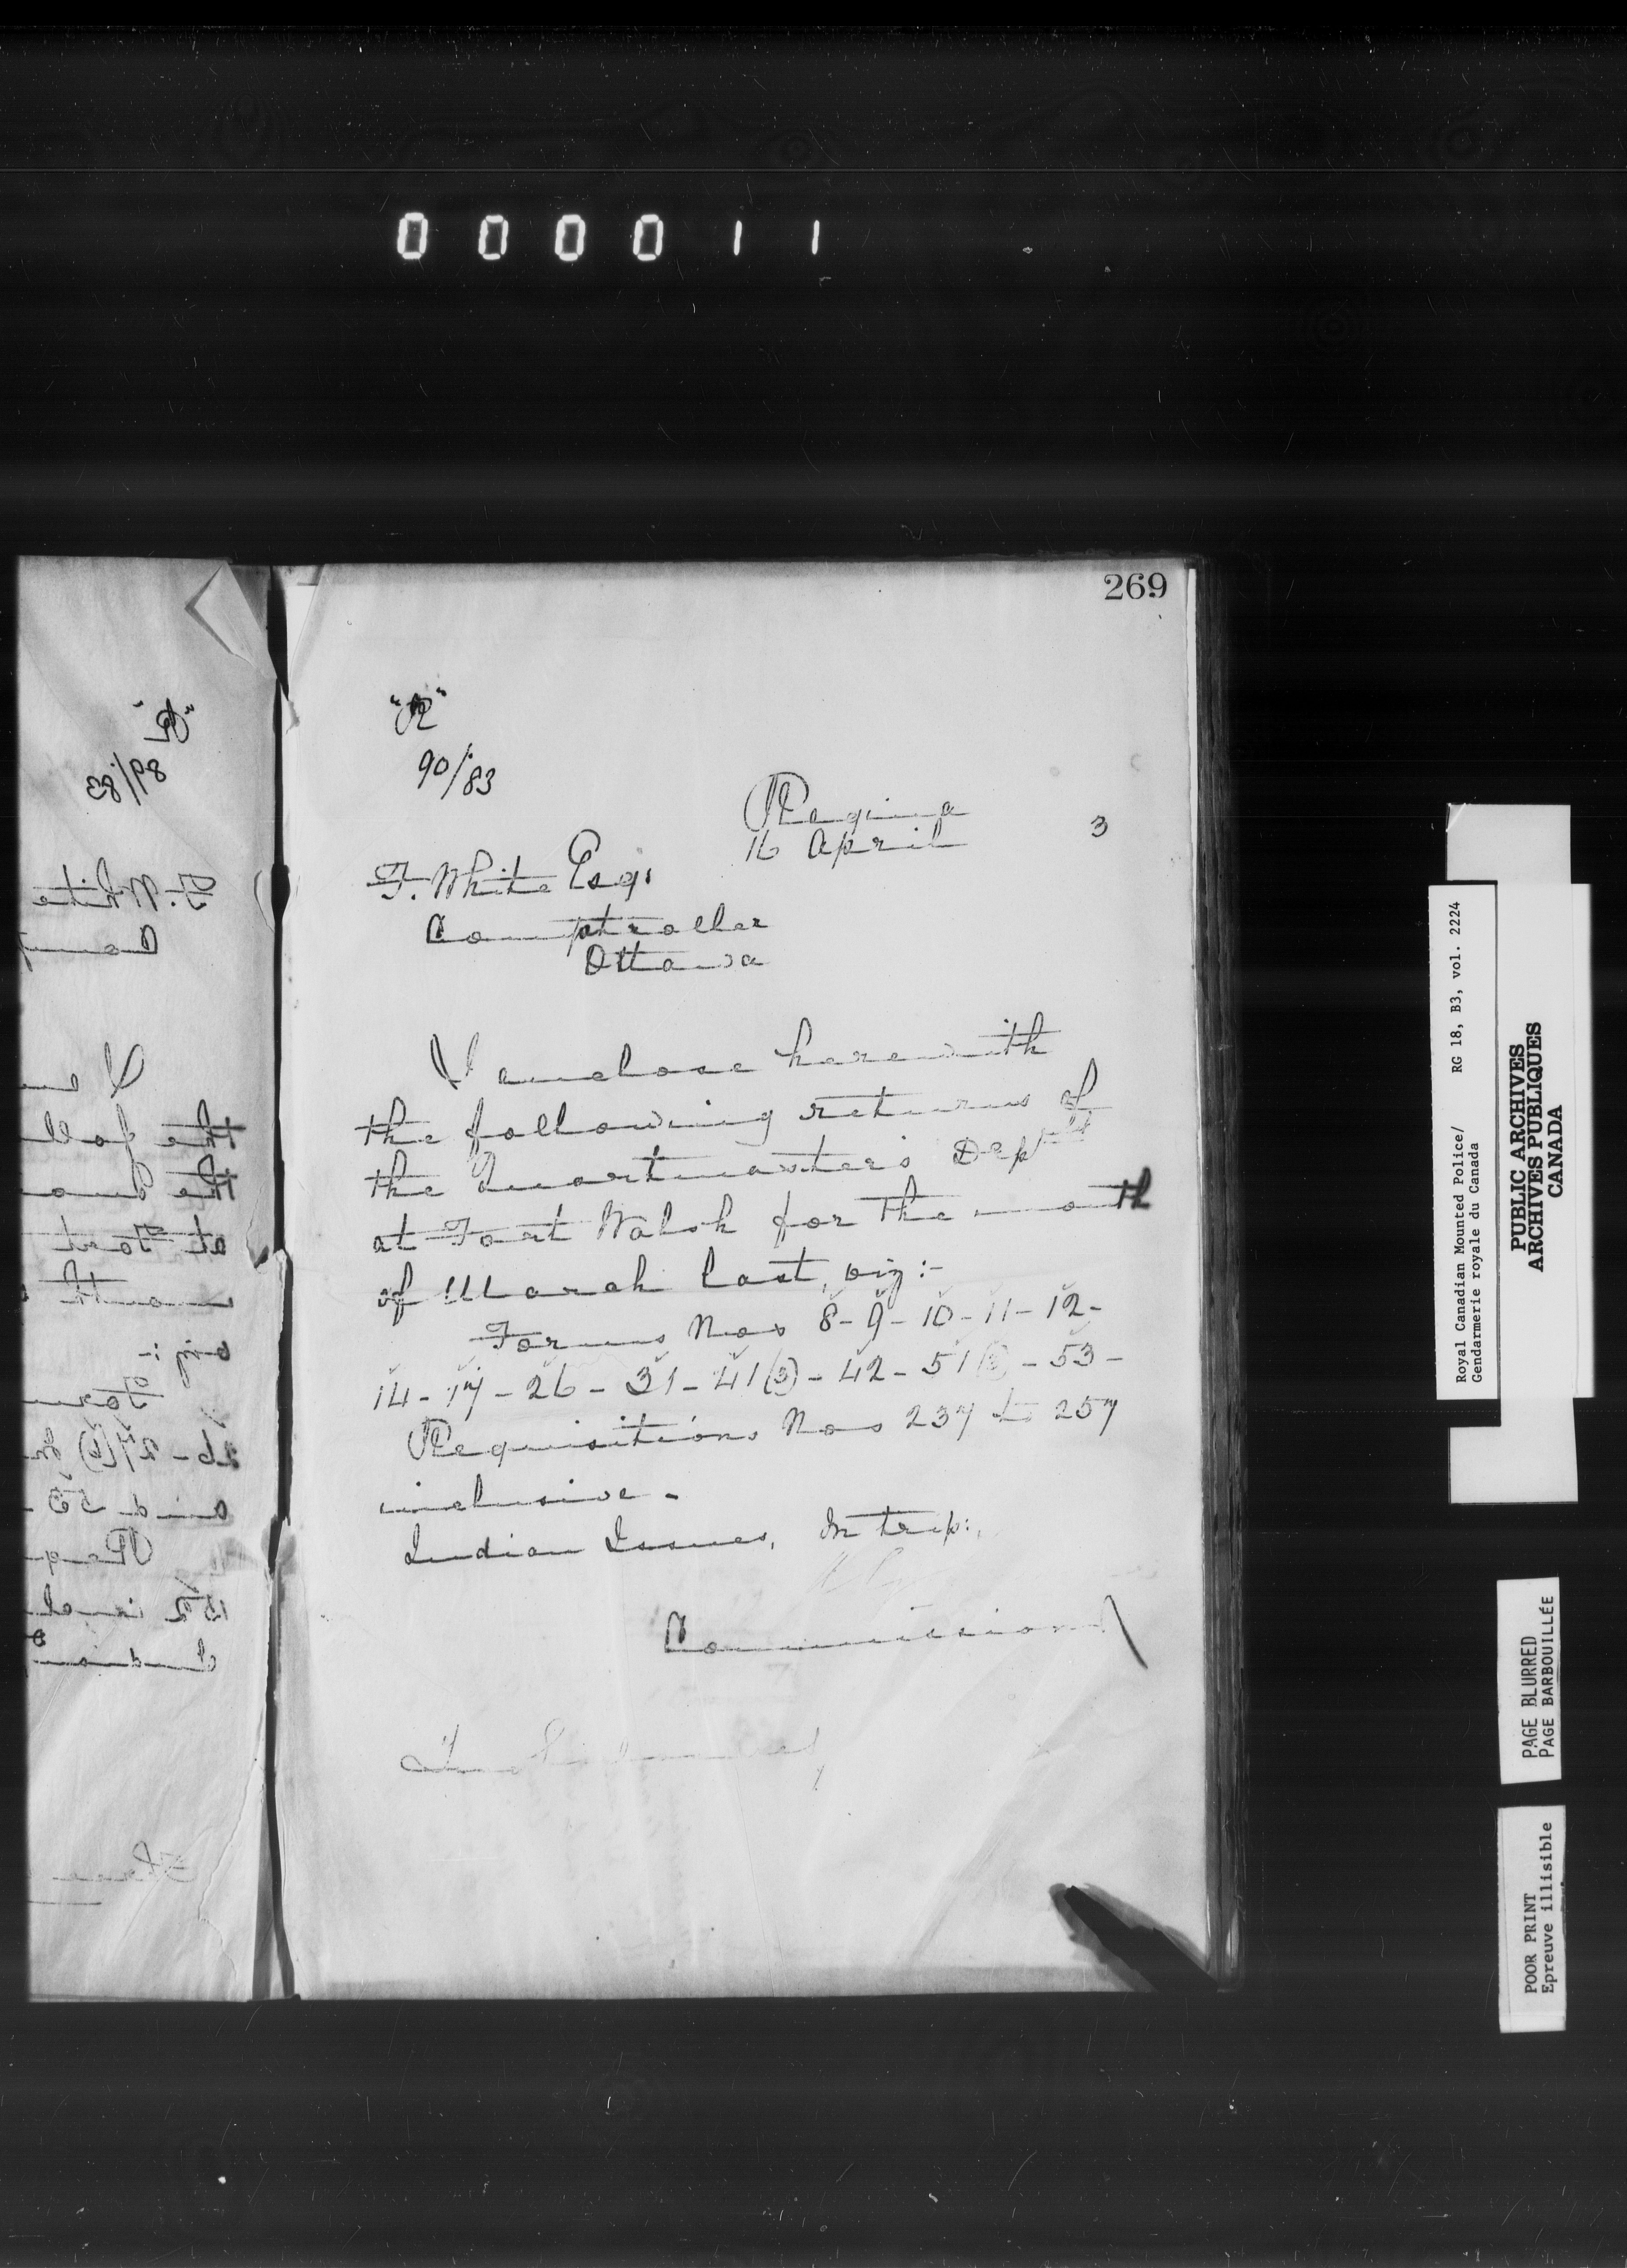 000011
269
"R"
90/83
Regina
16 April 3
F. White Esq.
Comptroller
Ottawa
I enclose herewith
the following returns of
the Quartmaster's Dept
at Fort Walsh for the month
of March last, viz:-
Forms Nos 8-9-10-11-12-
14-17-26-31-41(3)-42-51(2)-53-
Requisitions Nos 237 to 257
inclusive -
Indian Issues, In trip:
Commissioner
"R"
89/83
F. White
Comp
I en
the foll
the Qua
at Fort
month
viz:-
Form
and 53-
Req
incl
Indian
Royal Canadian Mounted Police/ RG 18, B3, vol. 2224
Gendarmerie royale du Canada
PUBLIC ARCHIVES
ARCHIVES PUBLIQUES
CANADA
PAGE BLURRED
PAGE BARBOUILLÉE
POOR PRINT
Epreuve illisible